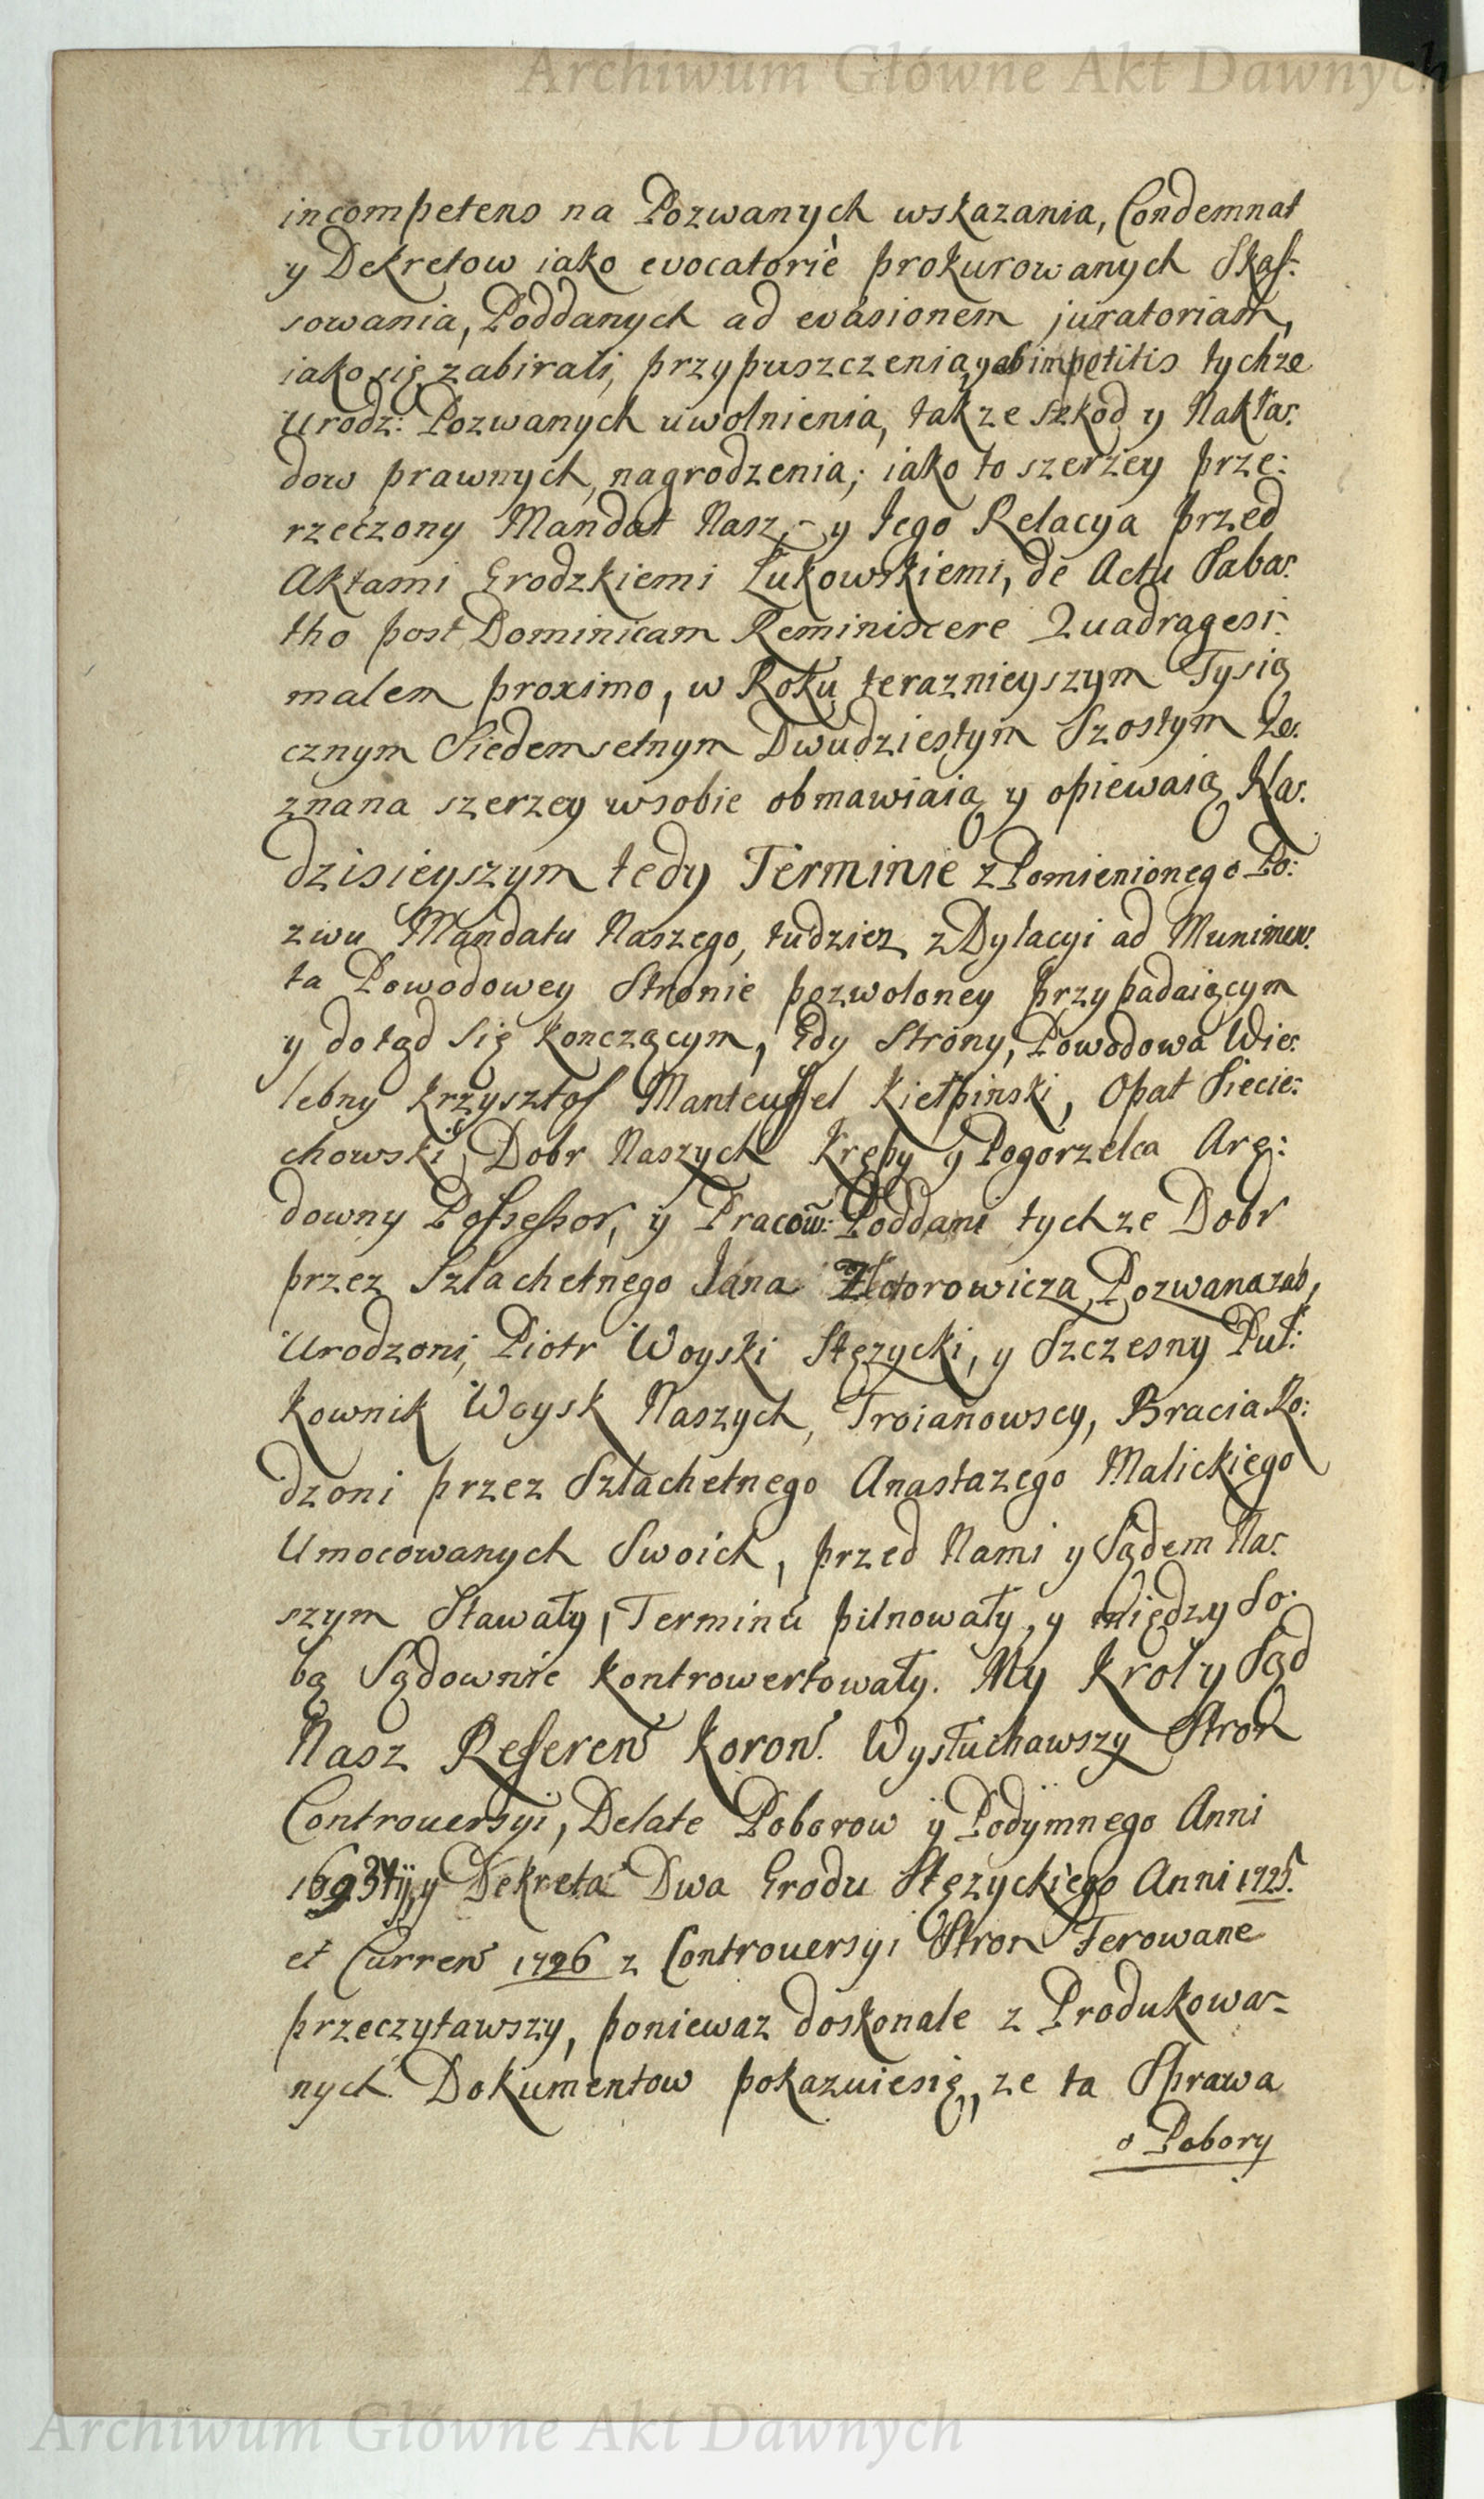 Archiwum Główne Akt Dawnych
incompetens na Pozwanych wskazania, Condemnat
y Dekretow iako evocatoriè prokurowanych Skas-
sowania, Poddanych ad evasionem juratoriam,
iako się zabirali, przypuszczenia, y ab impetitis tychze
Urodz: Pozwanych uwolnienia, takze szkod y Nakła-
dow prawnych, nagrodzenia; iako to szerzey prze:
rzeczony Mandat Nasz, y Jego Relacya przed
Aktami Grodzkiemi Łukowskiemi, de Actu Saba-
tho post Dominicam Reminiscere Quadragesi-
malem proximo, w Roku teraznieyszym Tysią
cznym Siedemsetnym Dwudziestym Szostym Ze-
znana szerzey wsobie obmawiaią y opiewaią Na-
dzisieyszym tedy Terminie z Pomienionego Po:
zwu Mandatu Naszego, tudziez z Dylacyi ad Munimen-
ta Powodowey Stronie pozwoloney przypadaiącym
y dotąd się konczącym, Gdy Strony, Powodowa Wie-
lebny Krzysztof Manteuffel Kiełpinski, Opat Siecie-
chowski, Dobr Naszych Kręþy y Pogorzelca Arę:
downy Possessor, y Pracow: Poddani tychze Dobr
przez Szlachetnego Jana Pozwana zaś,
Urodzoni, Piotr Woyski Stęzycki, y Szczesny Puł:
kownik Woysk Naszych, Troianowscy, Bracia Ro:
dzoni przez Szlachetnego Anastazego Malickiego
Umocowanych Swoich, przed Nami y Sądem Na-
szym Stawały, Terminu pilnowały, y między So-
bą Sądownie kontrowertowały. My Krol y Sąd
Nasz Referen Koron. Wysłuchawszy Stron
Controuersyi, Delate Poborow ÿ Podymnego Anni
y Dekreta Dwa Grodu Stęzyckiego Anni 1725.
et Curren 1726 z Controuersyi Stron Ferowane
przeczytawszy, poniewaz doskonale z Produkowa-
nych Dokumentow pokazuiesię, ze ta Sprawa
o Pobory
Archiwum Główne Akt Dawnych